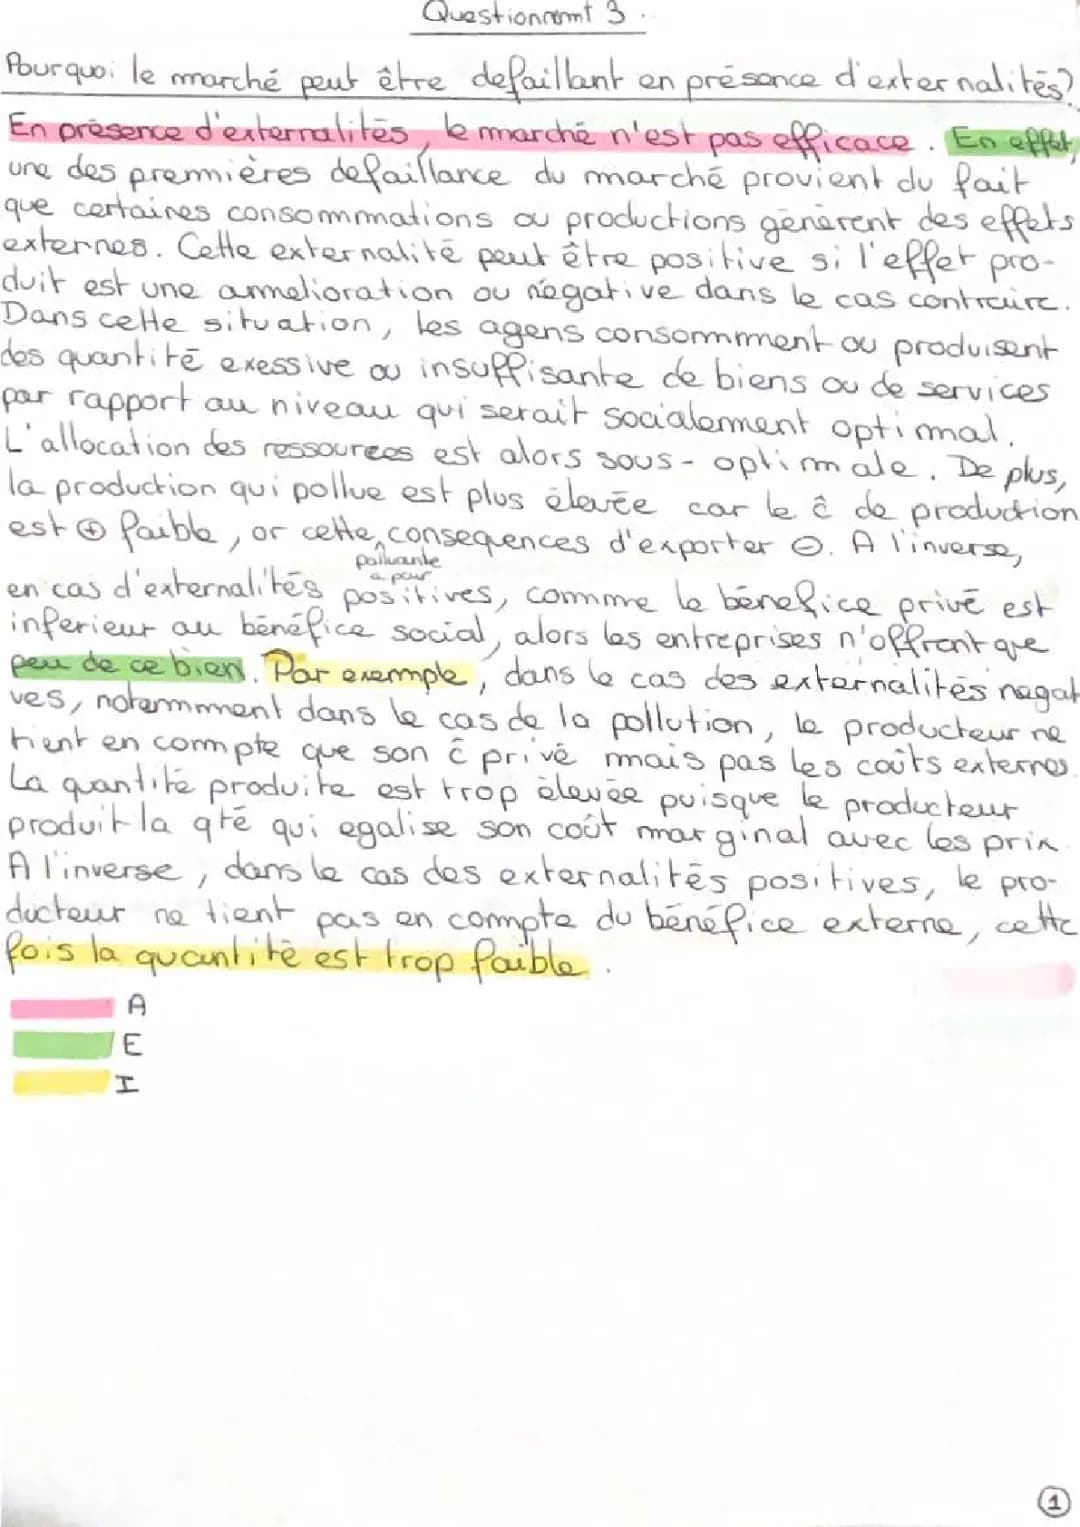 Questionnemt 3.
Pourquoi le marché peut être defaillant en présence d'externalités?
En présence d'externalités, le marché n'est pas efficace. En effet,
une des premières defaillance du marché provient du fait
que certaines consommations ou productions génèrent des effets
externes. Cette externalité peut être positive si l'effet pro-
duit est une amelioration ou négative dans le cas contraire.
Dans cette situation, les agens consomment ou produisent
des quantité exessive ou insuffisante de biens ou de services
par rapport au niveau qui serait socialement optimal.
L'allocation des ressources est alors sous-optimale. De plus,
la production qui pollue est plus élevée car le ĉ de production
est ⊕ faible, or cette consequences d'exporter ⊖. A l'inverse,
polluante
a pour
en cas d'externalités positives, comme le bénéfice privé est
inferieur au bénéfice social, alors les entreprises n'offrent que
peu de ce bien. Par exemple, dans le cas des externalités négati
ves, notemment dans le cas de la pollution, le producteur ne
tient en compte que son ĉ privé mais pas les coûts externes.
La quantité produite est trop élevée puisque le producteur
produit la qté qui egalise son coût marginal avec les prix.
A l'inverse, dans le cas des externalités positives, le pro-
ducteur ne tient pas en compte du bénéfice externe, cette
fois la quantité est trop faible.
A
E
I
1